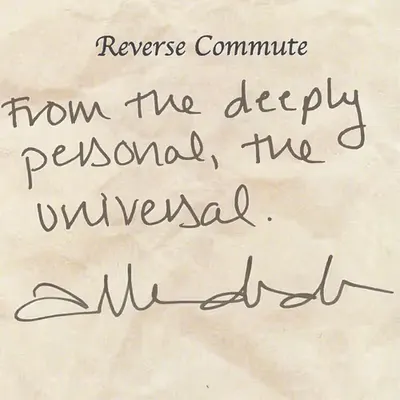 Reverse Commute
From the deeply
personal, the
universal.